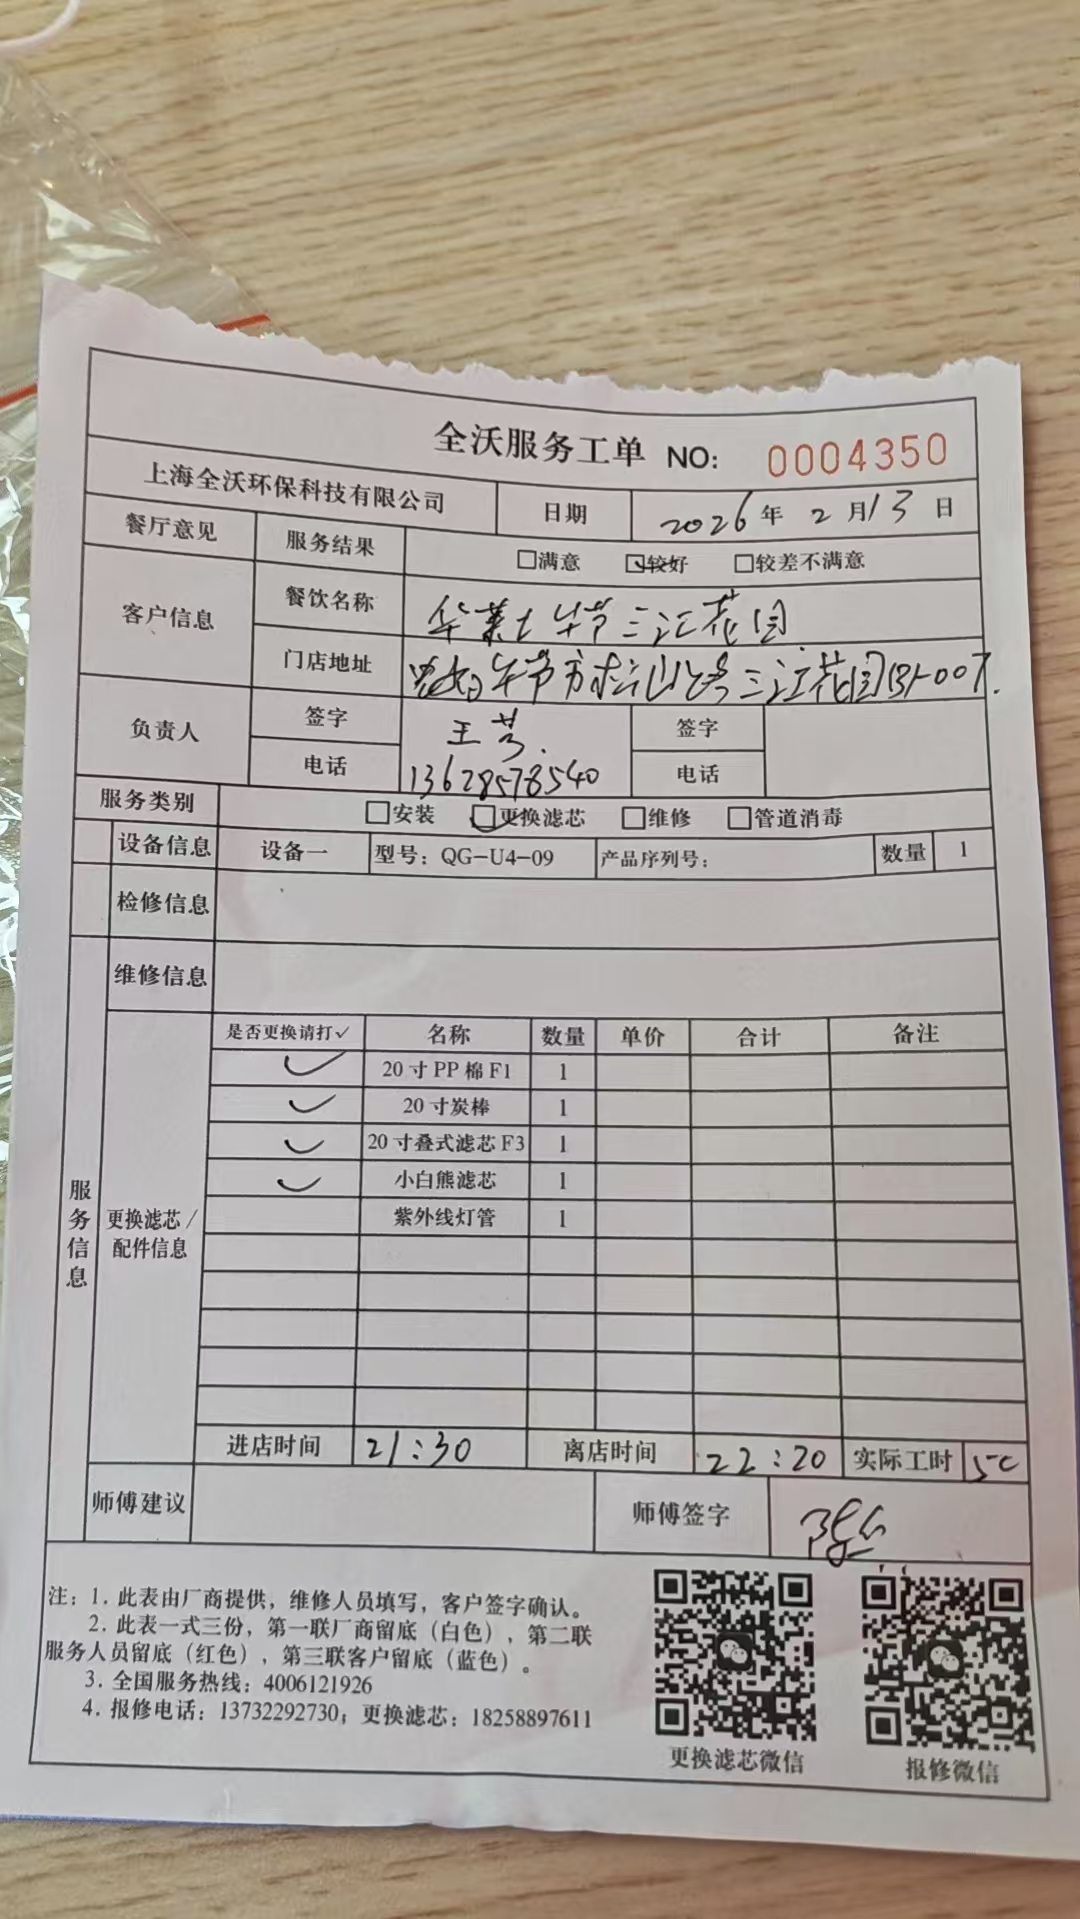 全沃服务工单 NO: 0004350
上海全沃环保科技有限公司 日期 2026年 2月13日
餐厅意见 服务结果 □满意 ☑较好 □较差不满意
客户信息 餐饮名称 华莱士毕节三江花园
门店地址 毕节市 山路三江花园B1-007.
负责人 签字 王芳. 签字
电话 13628578540 电话
服务类别 □安装 ☑更换滤芯 □维修 □管道消毒
设备信息 设备一 型号: QG-U4-09 产品序列号: 数量 1
检修信息
维修信息
服务信息
更换滤芯/配件信息
是否更换请打✓ 名称 数量 单价 合计 备注
✓ 20寸PP棉F1 1
✓ 20寸炭棒 1
✓ 20寸叠式滤芯F3 1
✓ 小白熊滤芯 1
紫外线灯管 1
进店时间 21:30 离店时间 22:20 实际工时 50
师傅建议 师傅签字
注: 1. 此表由厂商提供, 维修人员填写, 客户签字确认。
2. 此表一式三份, 第一联厂商留底(白色), 第二联
服务人员留底(红色), 第三联客户留底(蓝色)。
3. 全国服务热线: 4006121926
4. 报修电话: 13732292730; 更换滤芯: 18258897611
更换滤芯微信 报修微信